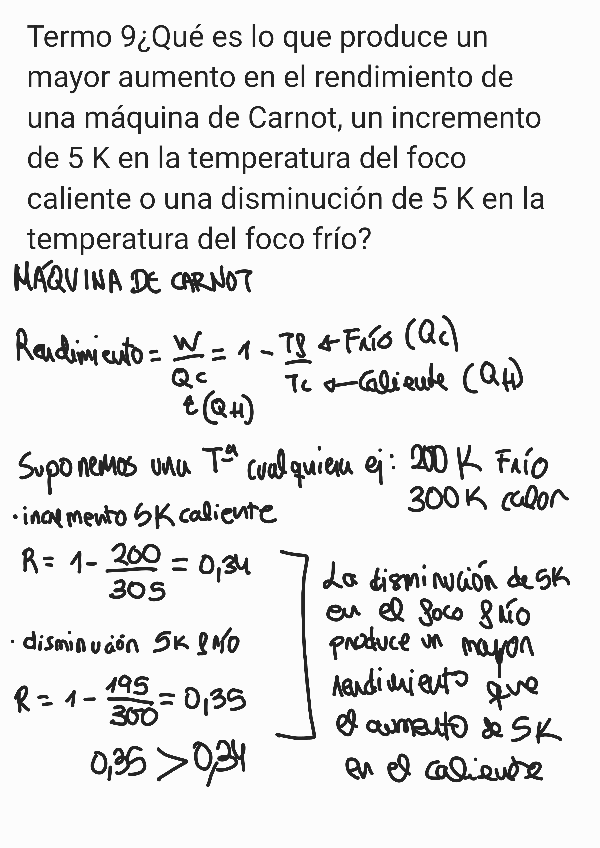 Termo 9¿Qué es lo que produce un
mayor aumento en el rendimiento de
una máquina de Carnot, un incremento
de 5 K en la temperatura del foco
caliente o una disminución de 5 K en la
temperatura del foco frío?
MÁQUINA DE CARNOT
Rendimiento = W/Qc = 1 - Tf/Tc ← FRÍO (Qc)
← Caliente (QH)
↑ (QH)
Suponemos una Tª cualquiera ej: 200 K FRÍO
300 K calor
· incremento 5K caliente
R = 1 - 200/305 = 0,34
· disminución 5K frío
R = 1 - 195/300 = 0,35
0,35 > 0,34
La disminución de 5K
en el foco frío
produce un mayor
rendimiento que
el aumento de 5K
en el caliente